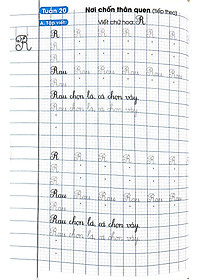 Tuần 20
Nơi chốn thân quen (tiếp theo)
A. Tập viết
Viết chữ hoa: R
R
R R R R R R
R R R R R R
Rau Rau Rau Rau Rau Rau
Rau Rau Rau Rau Rau Rau
Rau chọn lá, cá chọn vảy.
Rau chọn lá, cá chọn vảy.
R R R R R R
R R R R R R
Rau Rau Rau Rau Rau Rau
Rau Rau Rau Rau Rau Rau
Rau chọn lá, cá chọn vảy.
Rau chọn lá, cá chọn vảy.